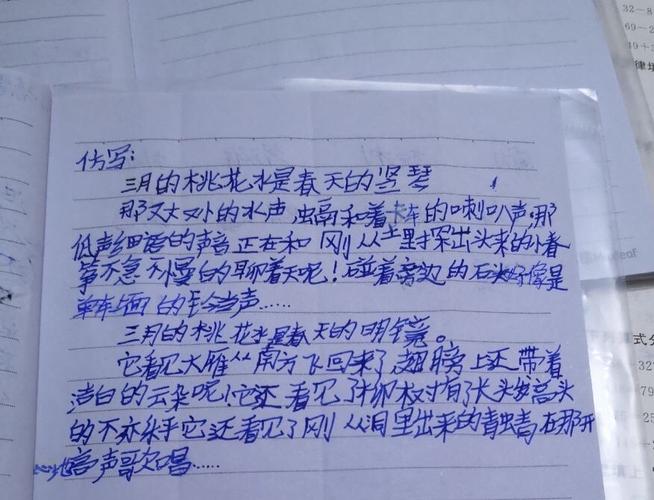 32-8
69-2
49+3
律填
仿写:
三月的桃花水是春天的竖琴
那又大又外的水声,虫高和着卡车的喇叭声.那
低声细语的声音正在和刚从土里探出头来的小春
笋不急不慢的聊着天呢!碰着旁边的石头好像是
单车的铃当声……
三月的桃花水是春天的明镜。
它看见大雁从南方飞回来了翅膀上还带着
洁白的云朵呢!它还看见了柳枝才有了长头发高头
的不亦乐乎它还看见了刚从洞里出来的青虫高在那开
心地高声歌唱……
式分